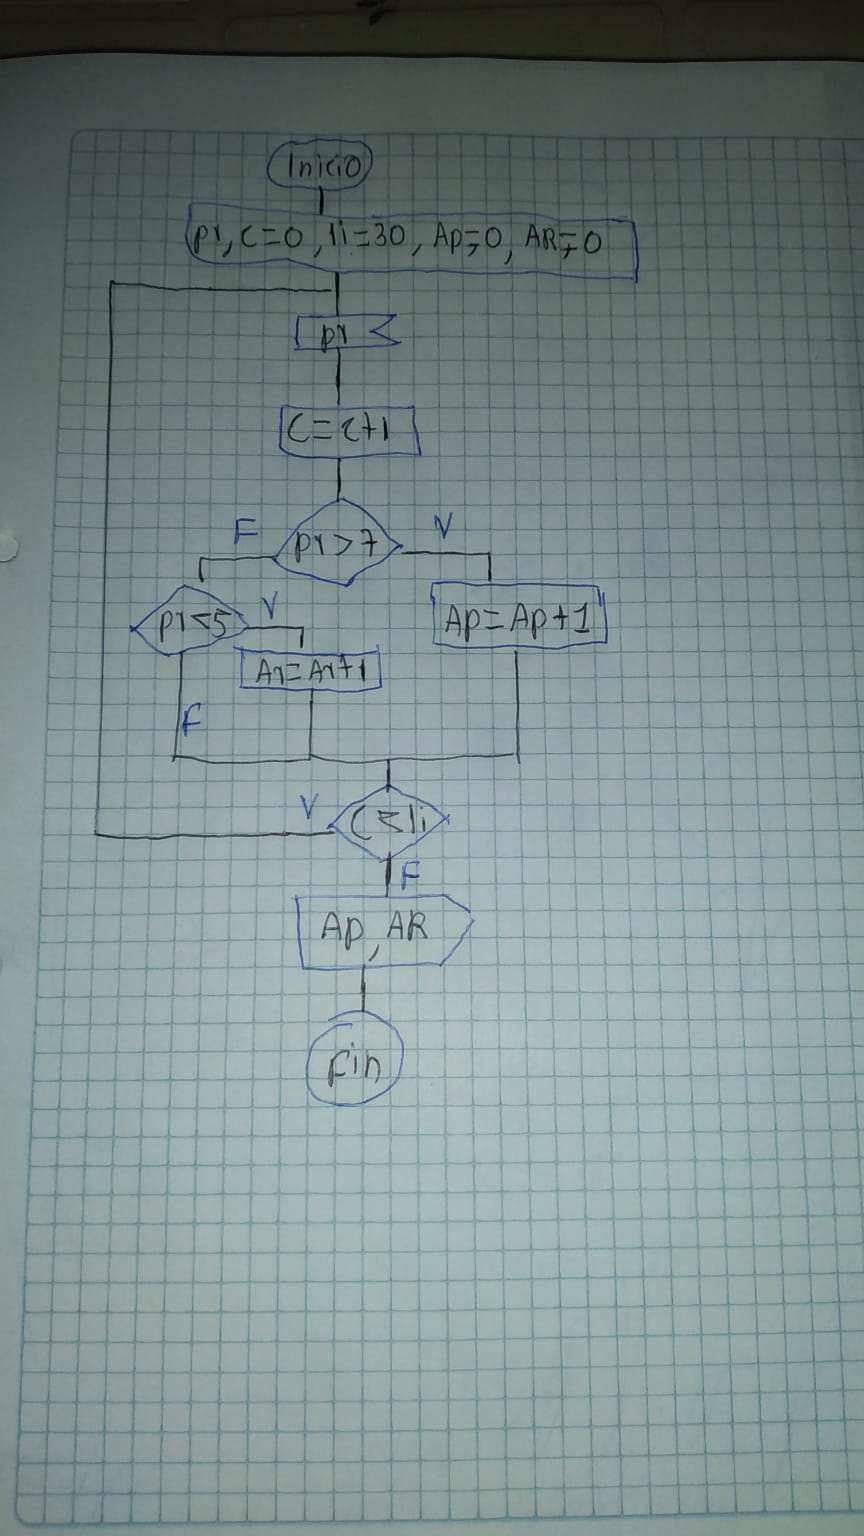 Inicio
pr, C=0, li=30, Ap=0, AR=0
pr
C=C+1
F
pr>7
V
pr<5
V
Ap=Ap+1
Ar=Ar+1
F
V
C≤li
F
Ap, AR
Fin